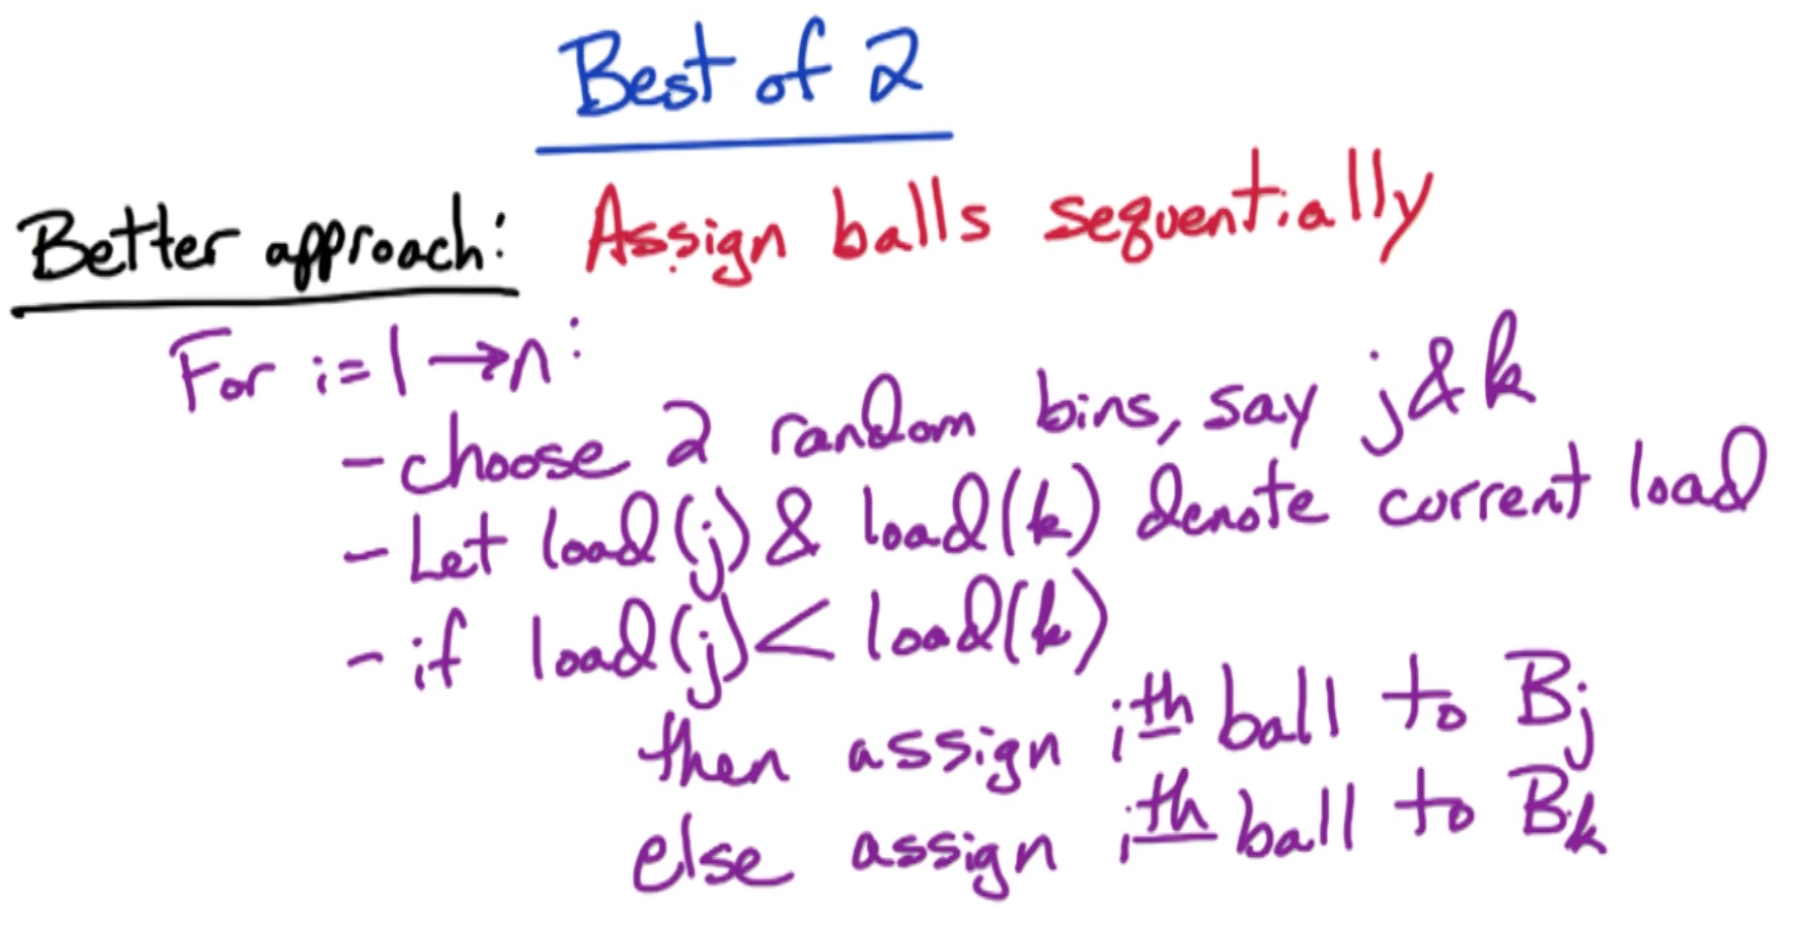 Best of 2
Better approach: Assign balls sequentially
For i=1→n:
-choose 2 random bins, say j & k
-Let load(j) & load(k) denote current load
-if load(j) < load(k)
then assign ith ball to Bj
else assign ith ball to Bk